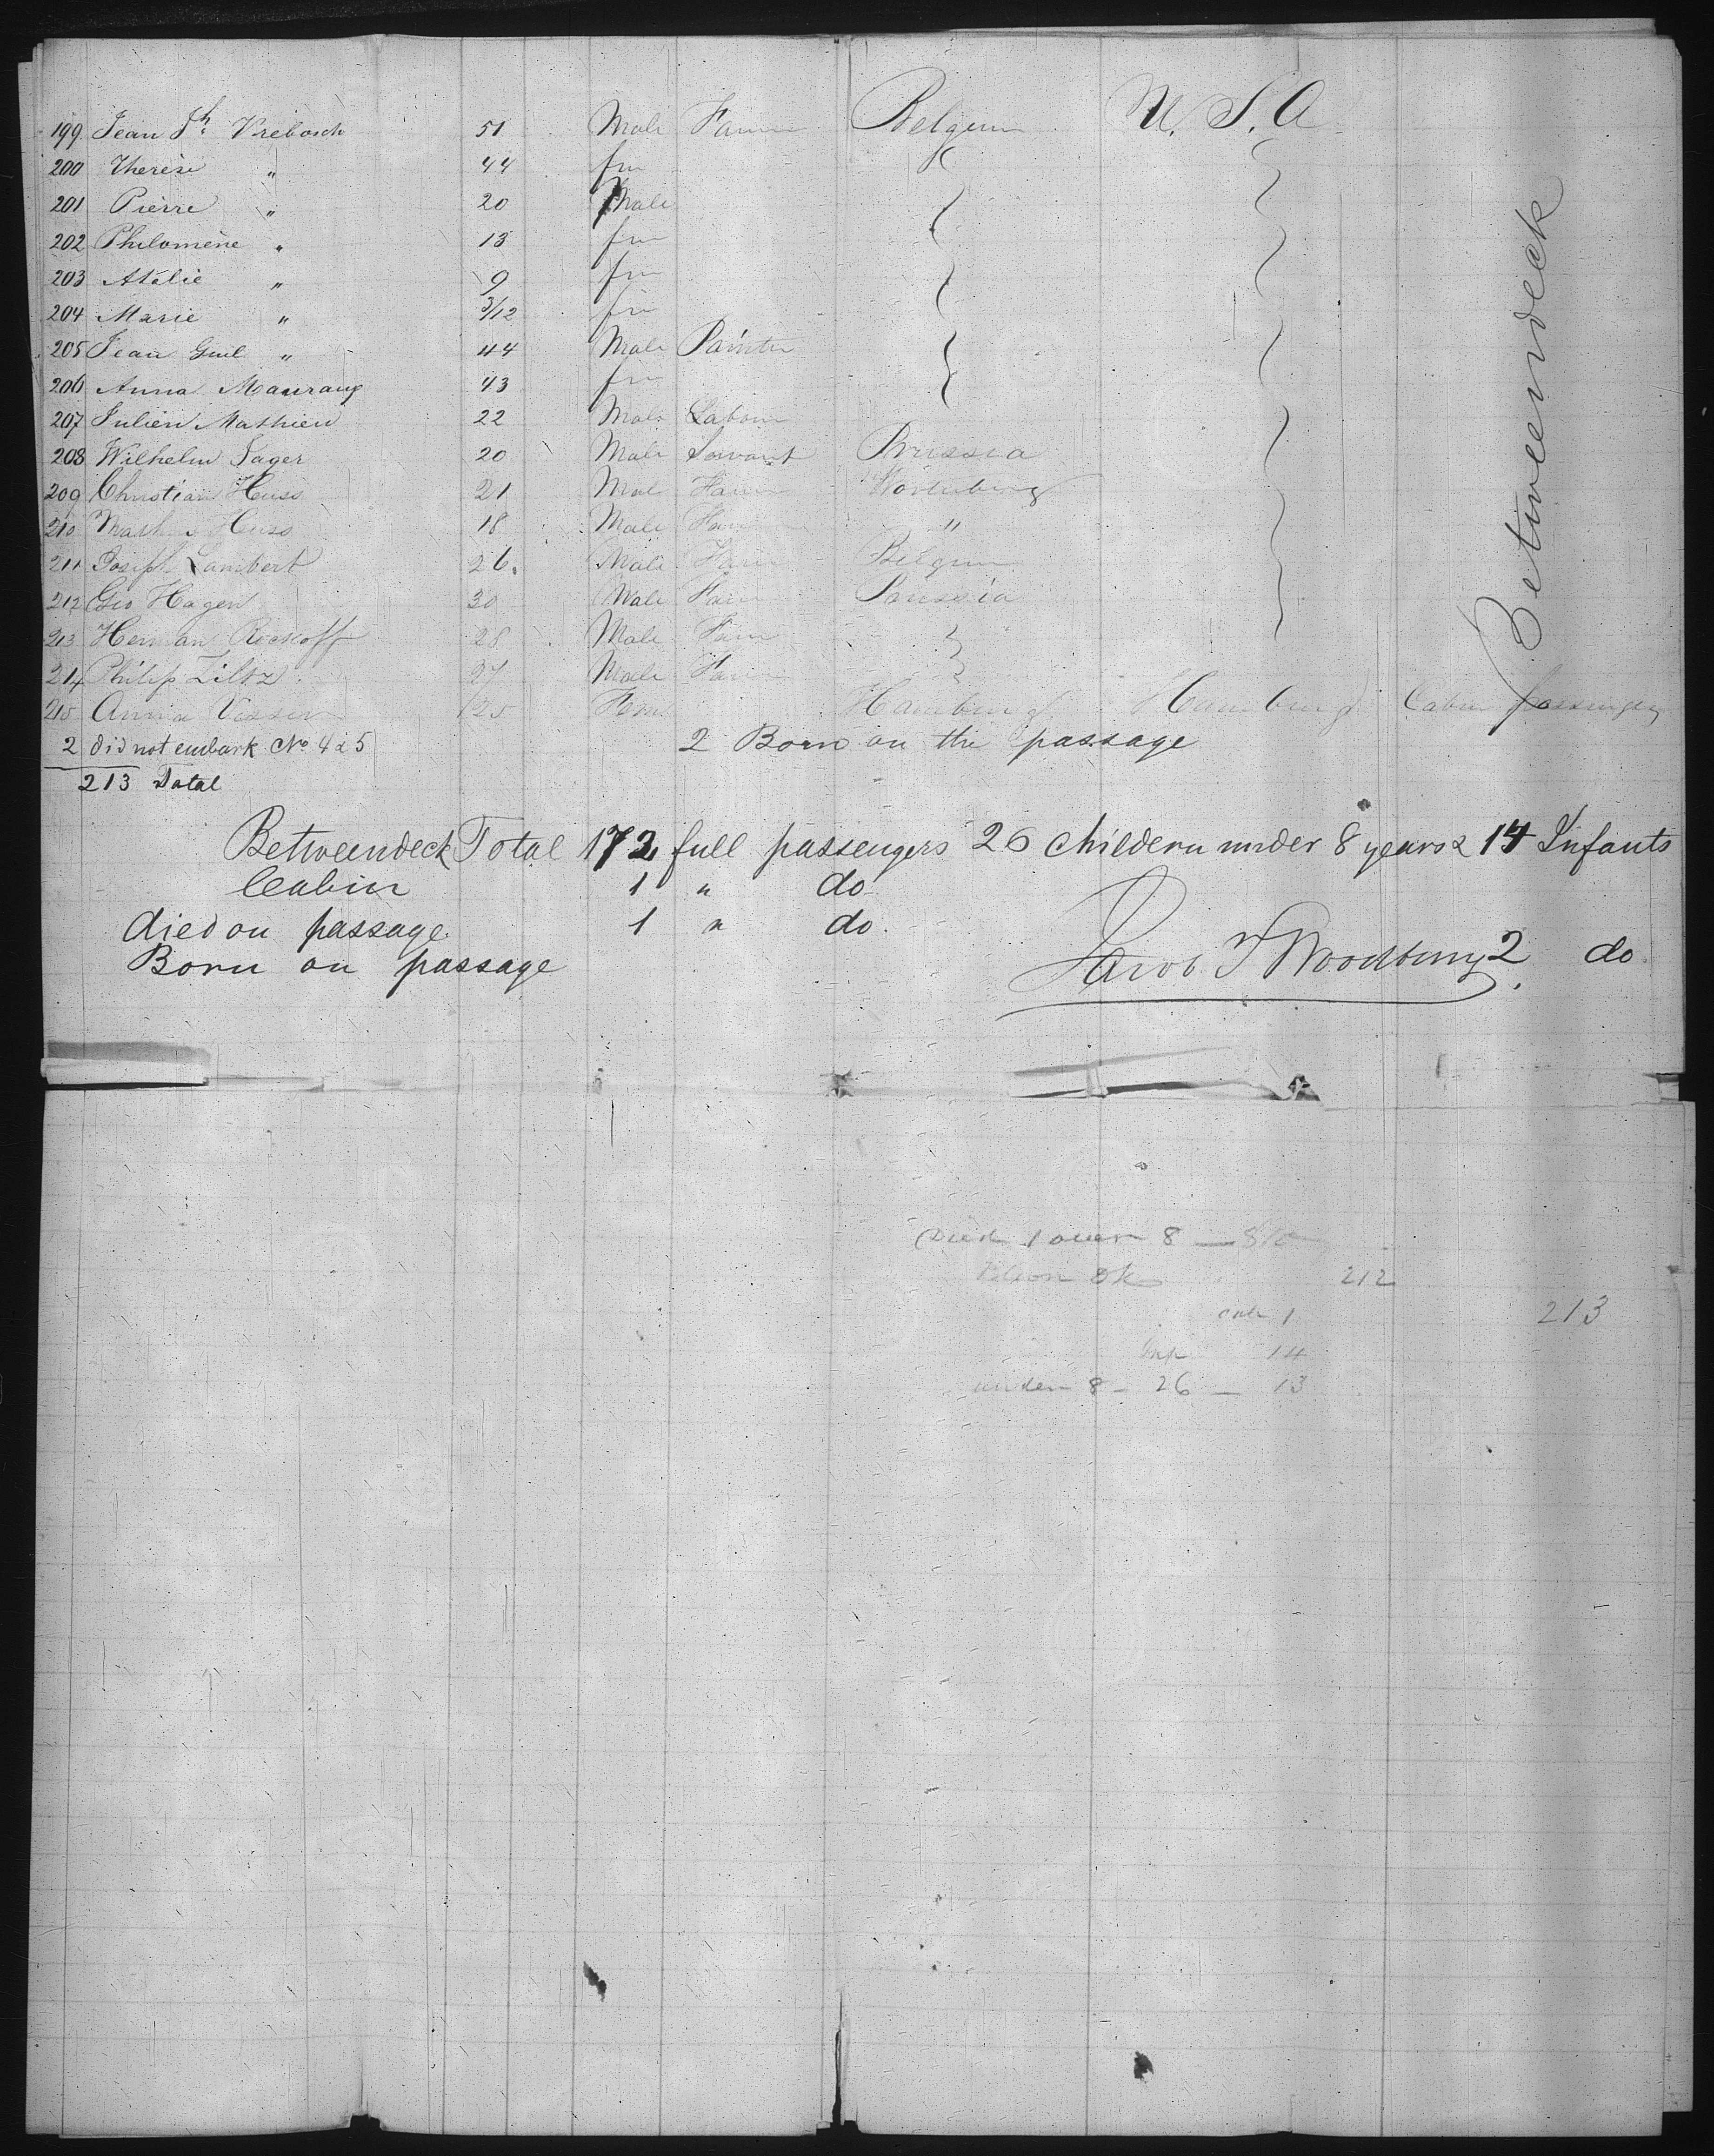 199 Jean Jh Vrebosch 51 Male Farm Belgium U. S. A
200 Therese " 44 fm
201 Pierre " 20 Male
202 Philomène " 13 fm
203 Atalie " 9 fm
204 Marie " 3/12 fm
205 Jean Guil " 44 Male Painter
206 Anna 43 fm
207 Julien Mathieu 22 Male Labour
208 Wilhelm Jager 20 Male Servant Prussia
209 Christian Huss 21 Male Farm Wörtenberg
210 Huss 18 Male Farm "
211 Joseph Lambert 26 Male Farm Belgium
212 Geo Hagen 30 Male Farm Prussia
213 Herman Rickoff 28 Male Farm
214 Philip Tiltz 27 Male Farm
215 Anna Visser 25 Fem Hamburg Hamburg Cabin passenger
Betweendeck
2 did not embark No 4 & 5 2 Born on the passage
213 Total
Betweendeck Total 172 full passengers 26 childern under 8 years & 14 Infants
Cabin 1 " do
died on passage 1 " do.
Born on passage 2 do.
Jacob T Woodbury
Died 1 over 8 — $10
212
1 213
14
under 8 - 26 — 13